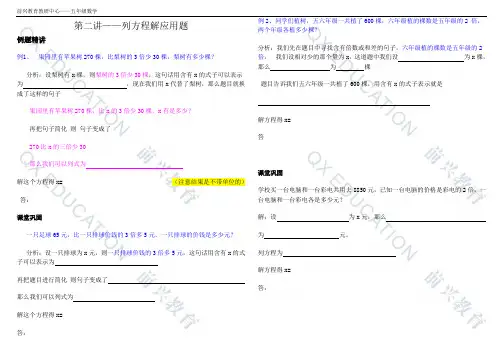 前兴教育教研中心——五年级数学
第二讲——列方程解应用题
例题精讲
例1、 果园里有苹果树270棵,比梨树的3倍少30棵,梨树有多少棵?
分析:设梨树有x棵,则梨树的3倍少30棵,这句话用含有x的式子可以表示
为 ,现在我们用x代替了梨树,那么题目就换
成了这样的句子
果园里有苹果树270棵,比x的3倍少30棵,x有是多少?
再把句子简化 则 句子变成了
270比x的三倍少30
那么我们可以列式为 。
解这个方程得x= (注意结果是不带单位的)
答:
课堂巩固
一只足球65元,比一只排球价钱的3倍多5元,一只排球的价钱是多少元?
分析:设一只排球为x元,则一只排球价钱的3倍多5元,这句话用含有x的式
子可以表示为
再把题目进行简化 则句子变成了
那么我们可以列式为
解这个方程得x=
答:
例2、同学们植树,五六年级一共植了600棵,六年级植的棵数是五年级的2倍,
两个年级各植多少棵?
分析,我们先在题目中寻找含有倍数或和差的句子,六年级植的棵数是五年级的2
倍, 我们设相对少的那个量为x,这道题中我们设 为x棵,
那么 为 棵
题目告诉我们五六年级一共植了600棵,用含有x的式子表示就是
解方程得x=
答
课堂巩固
学校买一台电脑和一台彩电共用去8850元,已知一台电脑的价格是彩电的2倍,一
台电脑和一台彩电各是多少元?
解:设 为x元,那么
为 元。
列方程为
解方程得x=
答:
QX EDUCATION
前兴教育